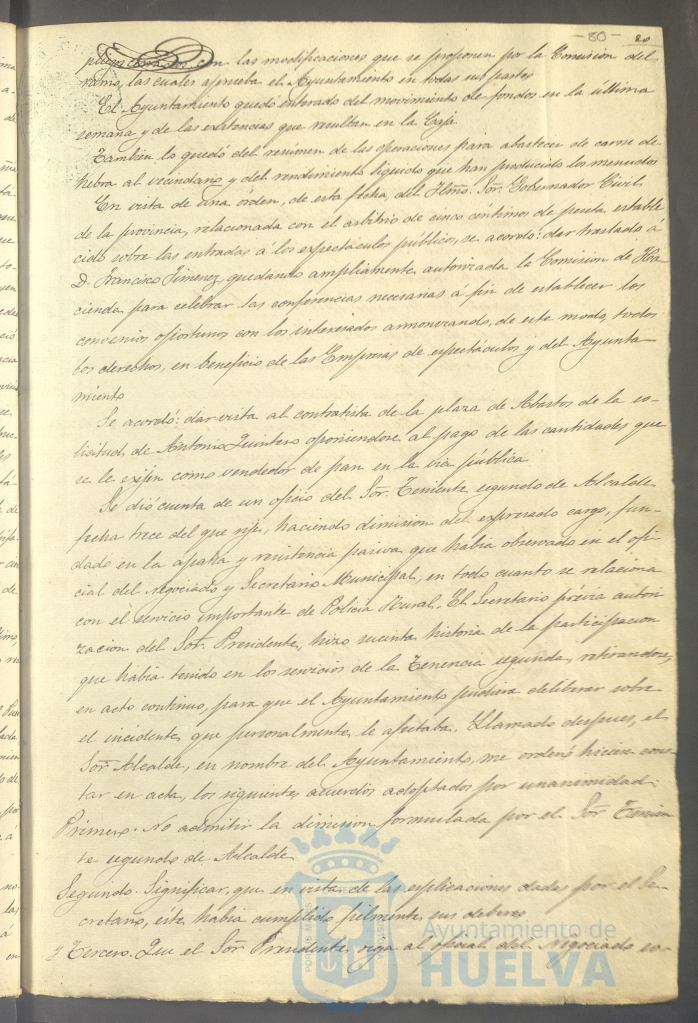 -80- 20
pliegos cerrados con las modificaciones que se proponen por la Comision del
ramo, las cuales aprueba el Ayuntamiento en todas sus partes
El Ayuntamiento quedó enterado del movimiento de fondos en la última
semana y de las existencias que resultan en la Caja.
Tambien lo quedó del resúmen de las operaciones para abastecer de carne de
hebra al vecindario y del rendimiento líquido que han producido los menudos
En vista de una órden, de esta fecha, del Iltmo. Sor. Gobernador Civil
de la provincia, relacionada con el arbitrio de cinco centimos de peseta, estable
cido sobre las entradas á los espectáculos públicos, se acordó: dar traslado á
D. Francisco Jimenez, quedando ampliamente autorizada la Comision de Ha
cienda para celebrar las conferencias necesarias á fin de establecer los
convenios oportunos con los interesados armonizando, de este modo, todos
los derechos, en beneficio de las Empresas de espectáculos y del Ayunta
miento
Se acordó: dar vista al contratista de la plaza de Abastos de la so-
licitud de Antonio Quintero oponiendose al pago de las cantidades que
se le exijen como vendedor de pan en la via pública
Se dió cuenta de un oficio del Sor. Teniente segundo de Alcalde
fecha trece del que rije, haciendo dimision del expresado cargo, fun-
dado en la apatia y resistencia pasiva que habia observado en el ofi-
cial del negociado y Secretario Municipal, en todo cuanto se relaciona
con el servicio importante de Policia Rural. El Secretario prévia autori
zacion del Sor. Presidente, hizo sucinta historia de la participacion
que habia tenido en los servicios de la Tenencia segunda, retirandose,
en acto continuo, para que el Ayuntamiento pudiera deliberar sobre
el incidente que personalmente le afectaba. Llamado despues, el
Sor. Alcalde, en nombre del Ayuntamiento, me ordenó hiciese cons-
tar en acta, los siguientes acuerdos adoptados por unanimidad:
Primero. No admitir la dimision formulada por el Sor Tenien
te segundo de Alcalde
Segundo. Significar, que en vista de las esplicaciones dadas por el Se-
cretario, éste habia cumplido fielmente sus deberes
y Tercero. Que el Sor Presidente exija al oficial del Negociado co-
Ayuntamiento de
HUELVA